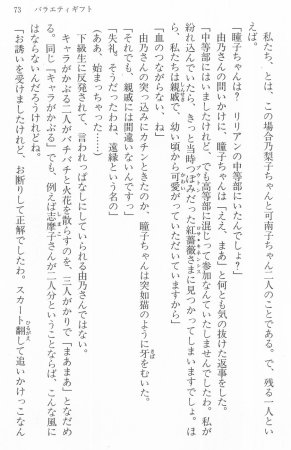 73　バラエティギフト
私たち、とは、この場合乃梨子ちゃんと可南子ちゃん二人のことである。で、残る一人とい
えば。
「瞳子ちゃんは？　リリアンの中等部にいたんでしょ？」
由乃さんの問いかけに、瞳子ちゃんは「ええ、まあ」と何とも気の抜けた返事をした。
「中等部にはいましたけれど、でも高等部に混じって参加なんていたしませんでしたわ。私が
紛れ込んでいたら、きっと当時つぼみだった紅薔薇さまに見つかってしまいますでしょ。ほ
ら、私たちは親戚で、幼い頃から可愛がっていただいていますから」
「血のつながらない、ね」
由乃さんの突っ込みにカチンときたのか、瞳子ちゃんは突如猫のように牙をむいた。
「それでも、親戚には間違いないんですっ」
「失礼。そうだったわね、遠縁という名の」
（ああ、始まっちゃった……）
下級生に反発されて、言われっぱなしにしていられる由乃さんではない。
キャラがかぶる二人がバチバチと火花を散らすのを、三人がかりで「まあまあ」となだめ
る。同じ「キャラがかぶる」でも、例えば志摩子さんが二人分ということならば、こんな風に
はならないんだろうけれどね。
「お誘いを受けましたけれど、お断りして正解でしたわ。スカート翻して追いかけっこなん